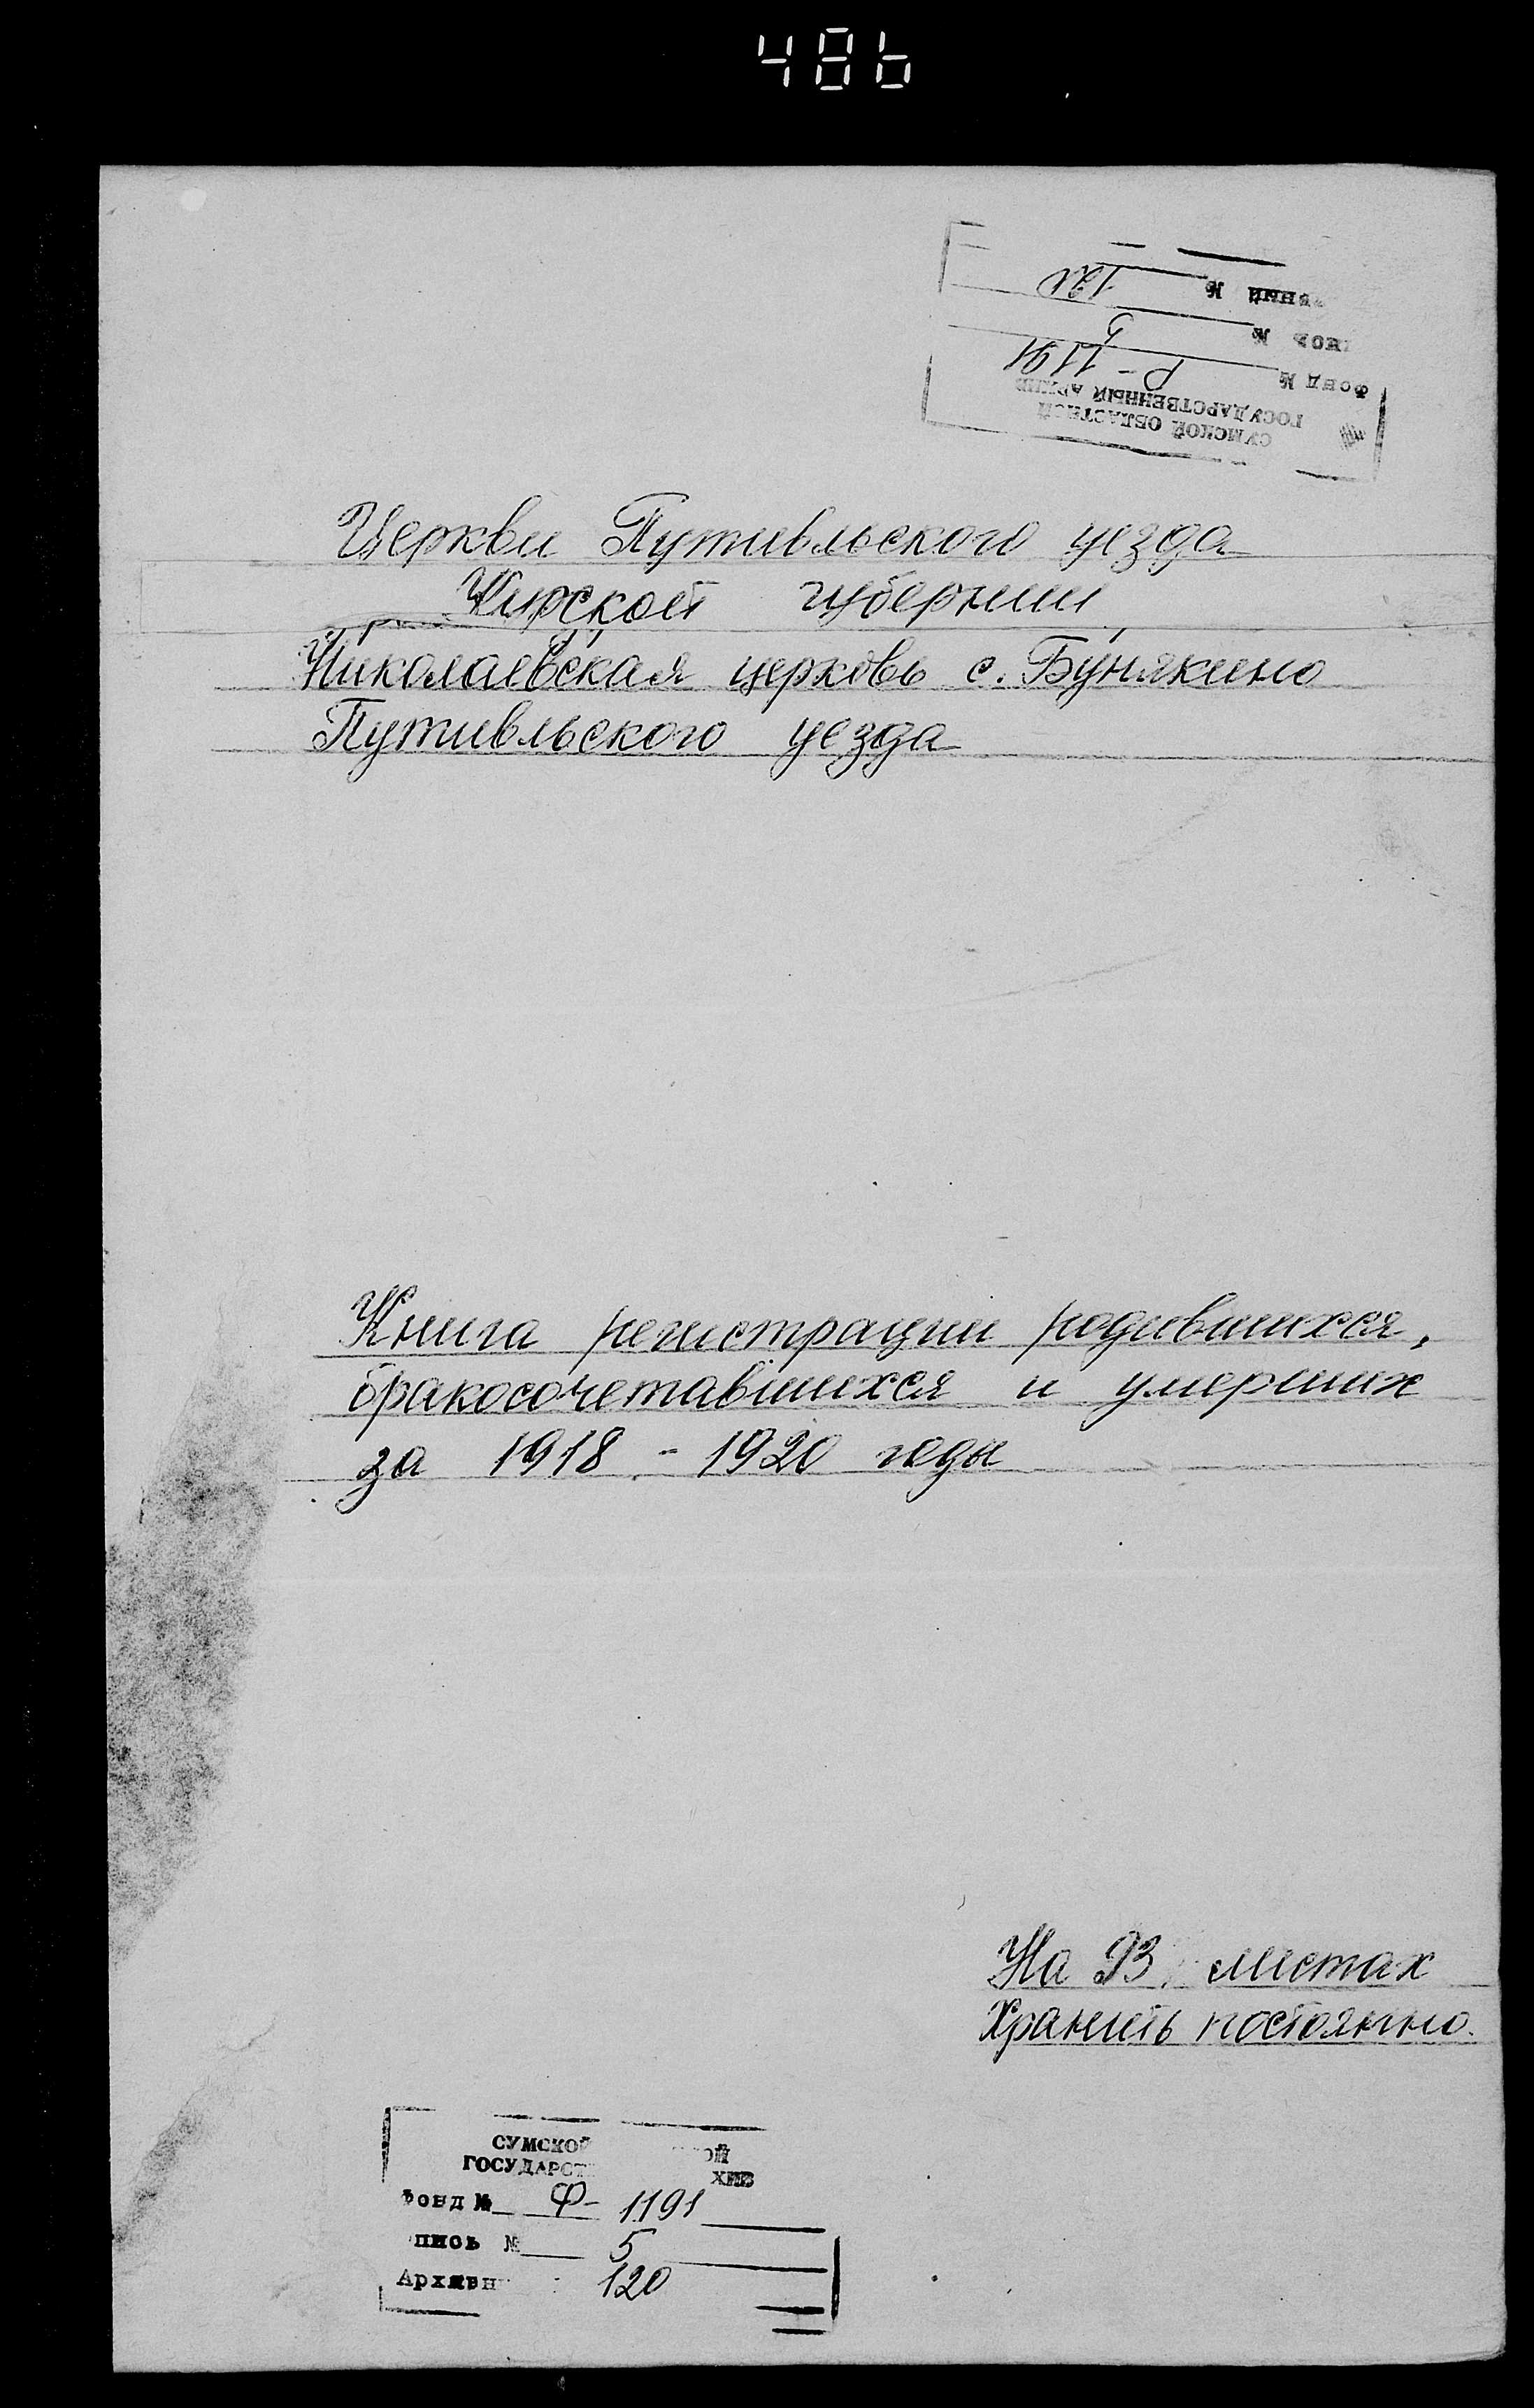 486
СУМСКОЙ ОБЛАСТНОЙ
ГОСУДАРСТВЕННЫЙ АРХИВ
Фонд № Р-1191
№ 5
№
Церкви Путивльского уезда
Курской губернии
Николаевская церковь с. Бунякино
Путивльского уезда
Книга регистрации родившихся,
бракосочетавшихся и умерших
за 1918 - 1920 годы
На 93 листах
Хранить постоянно.
СУМСКОЙ
ГОСУДАРСТ ХИВ
Фонд № Ф-1191
пись № 5
Архивн 120